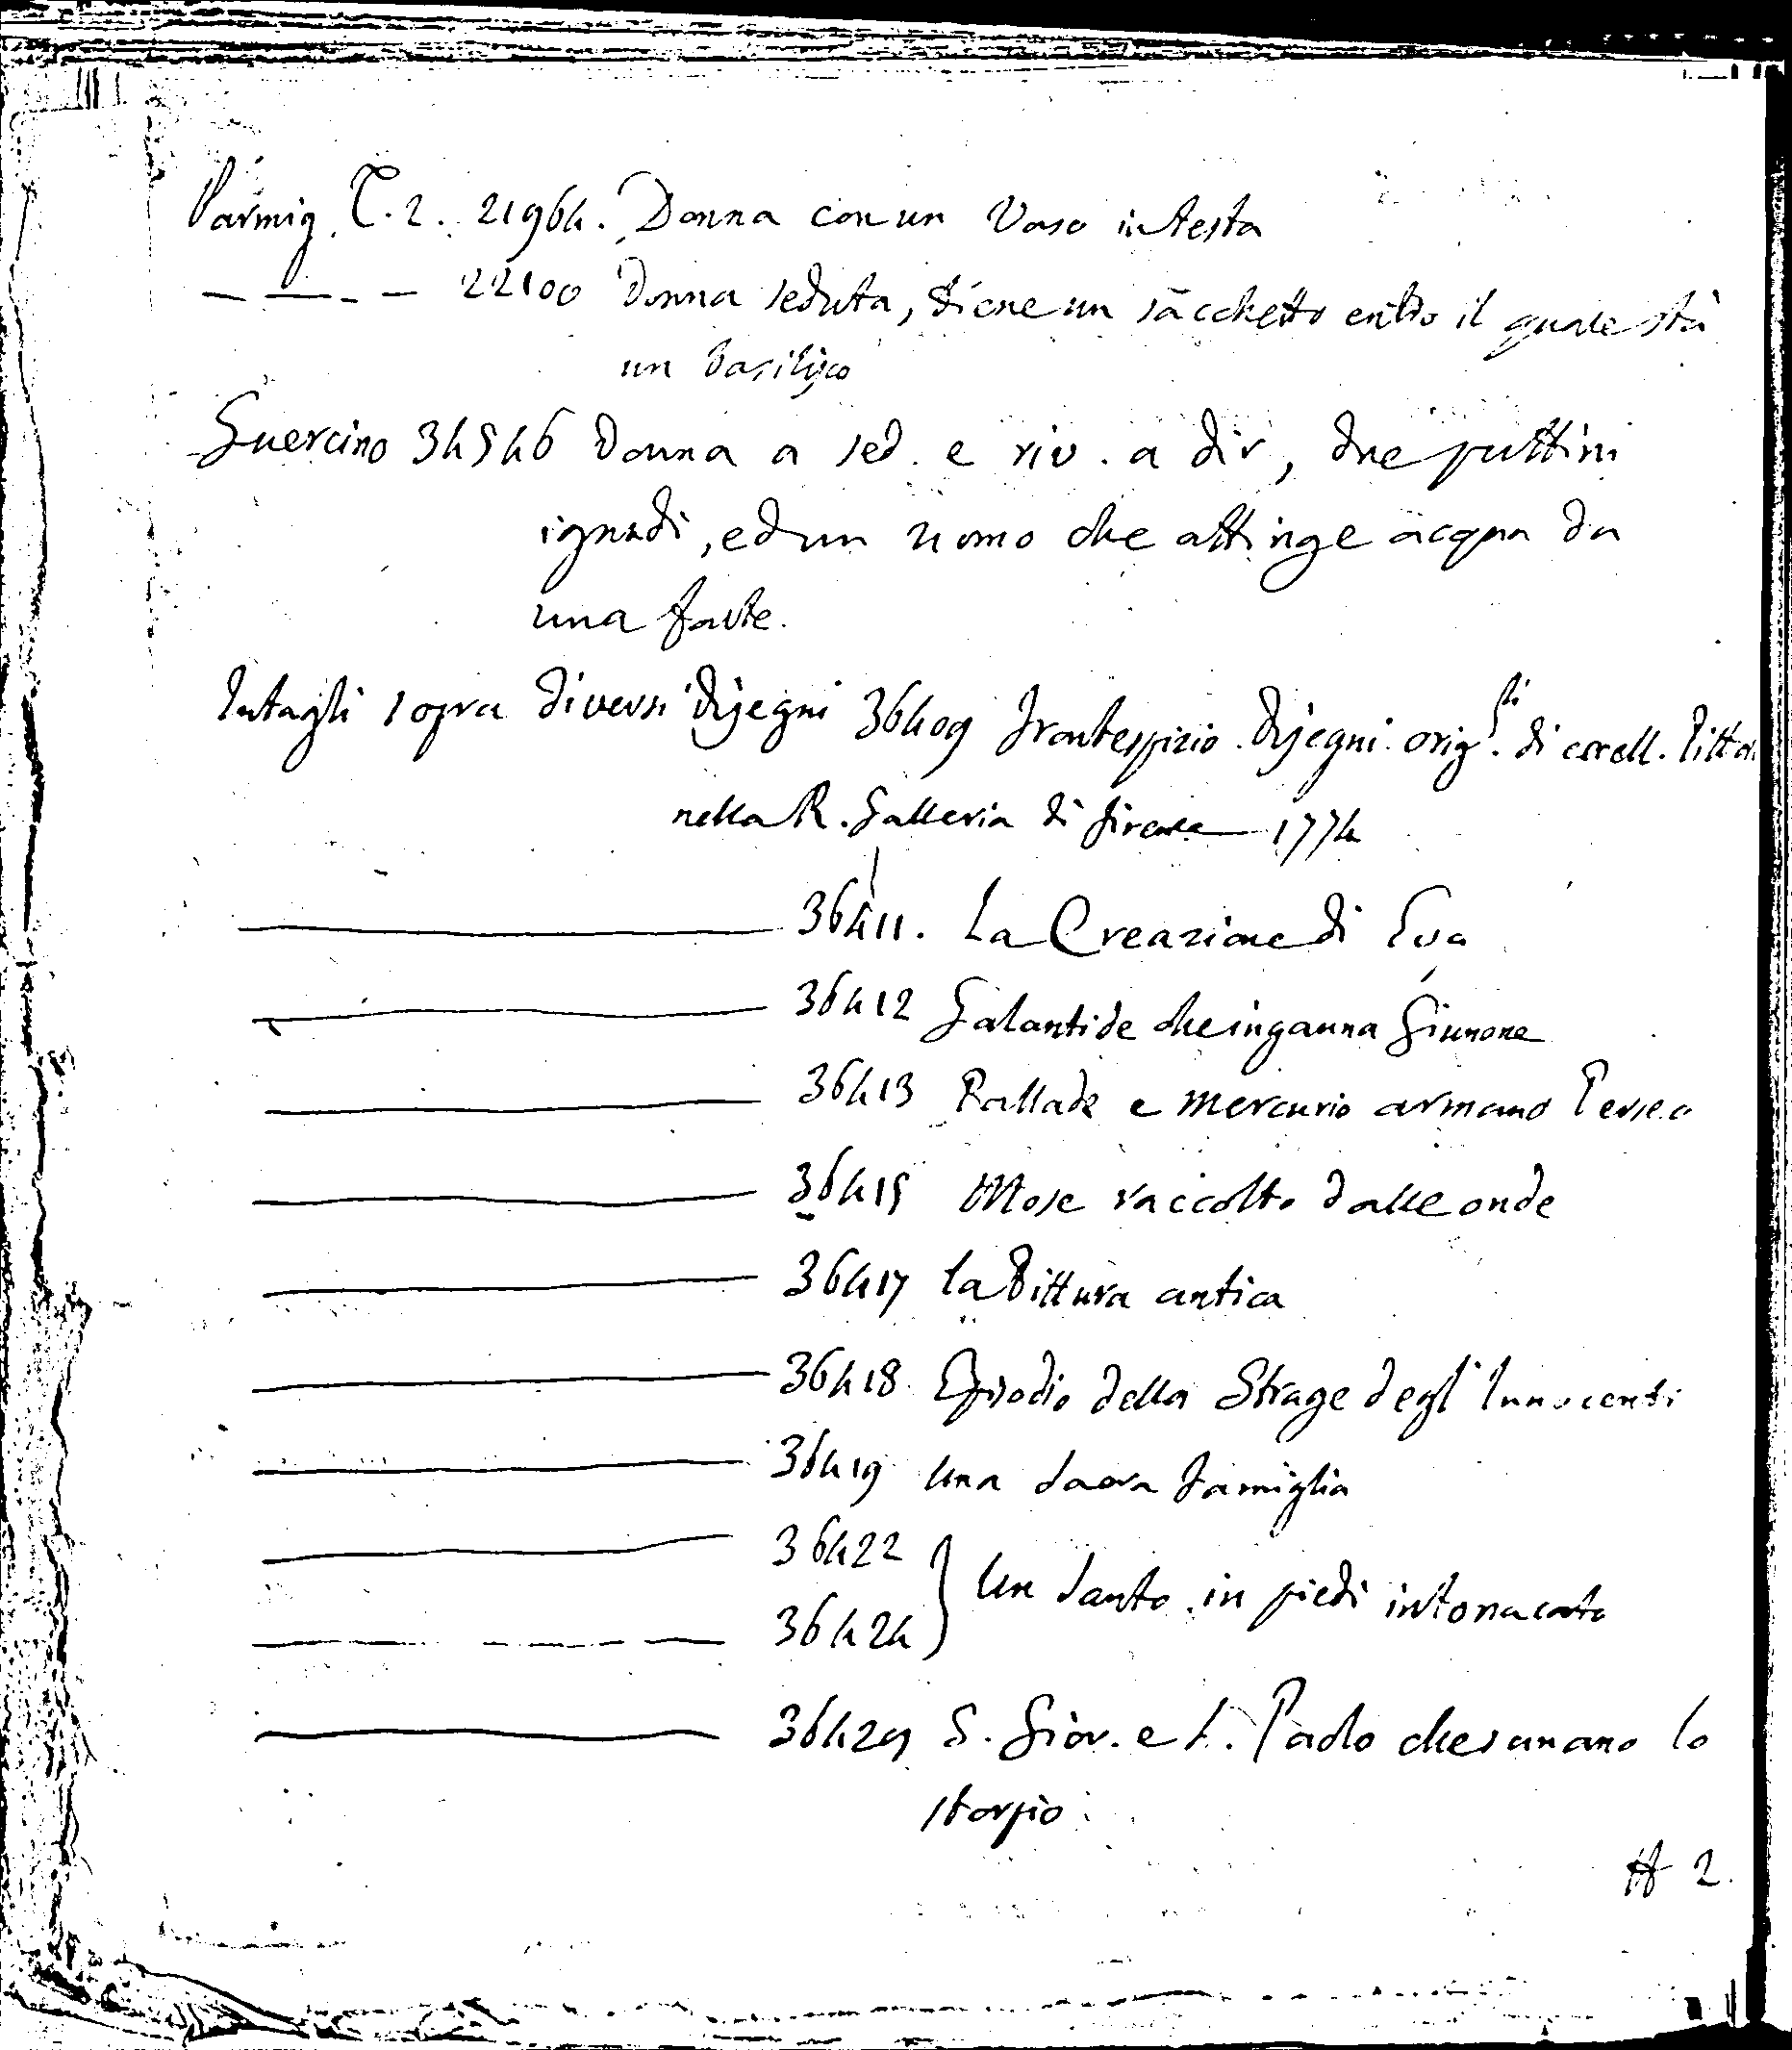 Parmig. T. 2. 21964. Donna con un Vaso in testa
— — - — 22100 Donna seduta, tiene un sacchetto entro il quale stà
un basilisco
Guercino 34546 Donna a sed. e riv. a dir, due puttini
ignudi, ed un uomo che attinge acqua da
una fonte.
Intagli sopra diversi disegni 36409 Frontespizio. Disegni. orig.li di eccell. Pittori
nella R. Galleria di Firenze 1774
——— 36411. La Creazione di Eva
——— 36412 Galantide che inganna Giunone
——— 36413 Pallade e Mercurio armano Perseo
——— 36415 Mose raccolto dalle onde
——— 36417 la Pittura antica
——— 36418 Episodio della Strage degl' Innocenti
——— 36419 Una Sacra Famiglia
——— 36422
——— 36424 } Un Santo in piedi intonacato
——— 36429 S. Giov. e S. Paolo che sanano lo
storpio
2.